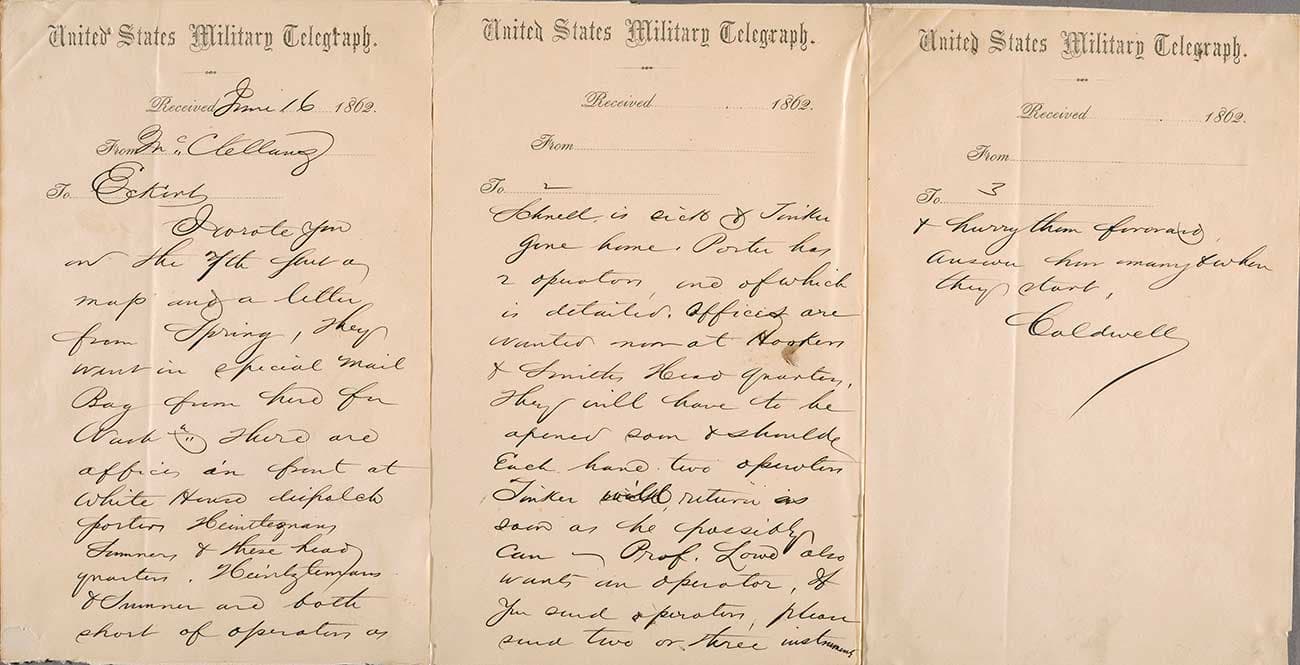 United States Military Telegraph.
Received June 16 1862.
From McClellans
To Eckert
I wrote you
on the 7th sent a
map and a letter
from Spring, They
went in special mail
Bag from here for
Wash"n" There are
offices in front at
White House dispatch
porters Heintzegmans
Sumners & these head
quarters. Heintztemans
& Sumner are both
short of operators as
United States Military Telegraph.
Received 1862.
From
To 2
Schnell is sick & Tinker
gone home. Porter has
2 operators, one of which
is detailed. Offices are
wanted now at Hookers
& Smiths Head quarters.
They will have to be
opened soon & should
Each have two operators
Tinker will return as
soon as he possibly
can – Prof. Lowe also
wants an operator, If
You send operators, please
send two or three instruments
United States Military Telegraph.
Received 1862.
From
To 3
& hurry them forward
Answer how many & when
they start,
Caldwell